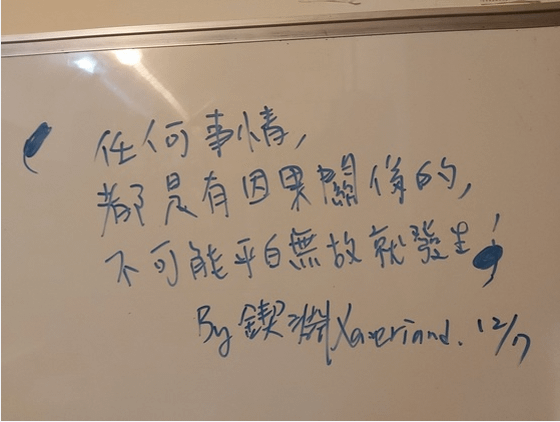 任何事情,
都是有因果關係的,
不可能平白無故就發生!
By 鍥淵 Xaveriand. 12/7